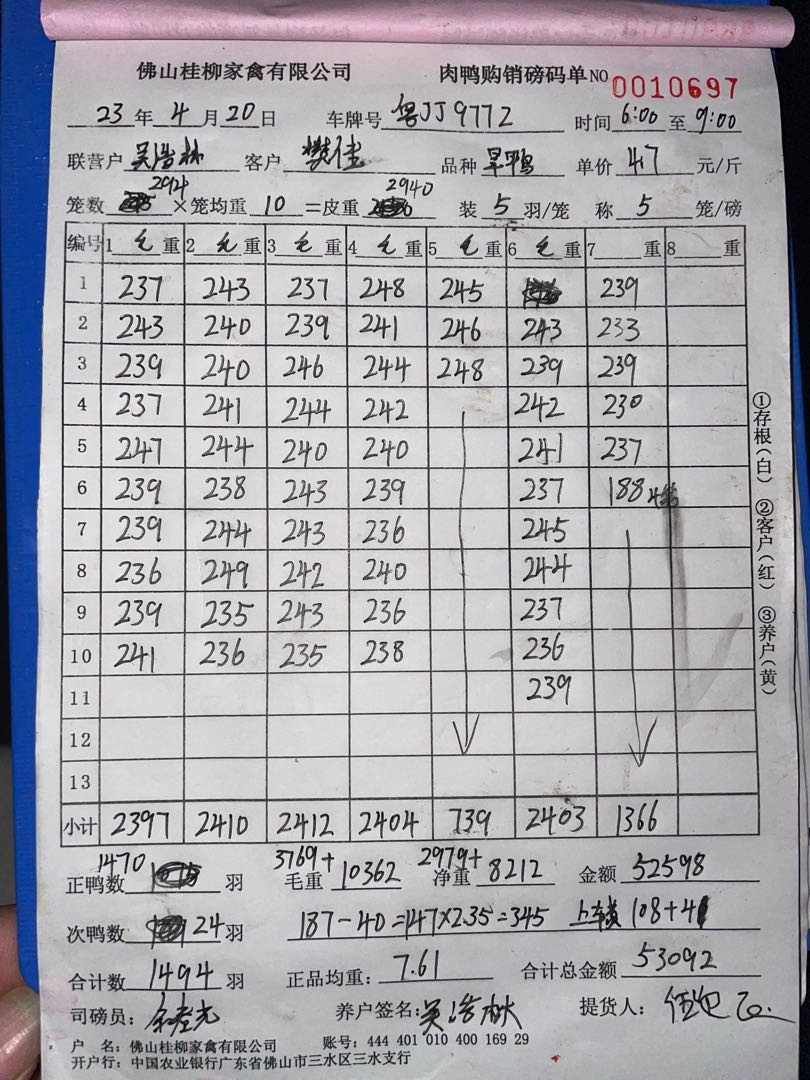 佛山桂柳家禽有限公司 肉鸭购销磅码单 NO 0010697
23年4月20日 车牌号 粤JJ9772 时间 6:00至9:00
联营户 吴浩林 客户 樊佳 品种 旱鸭 单价 4.7 元/斤
2944 2940
笼数 ×笼均重 10 =皮重 装 5 羽/笼 称 5 笼/磅
编号 1 毛重 2 毛重 3 毛重 4 毛重 5 毛重 6 毛重 7 重 8 重
1 237 243 237 248 245 239
2 243 240 239 241 246 243 233
3 239 240 246 244 248 239 239
4 237 241 244 242 242 230
5 247 244 240 240 241 237
6 239 238 243 239 237 188
7 239 244 243 236 245
8 236 249 242 240 244
9 239 235 243 236 237
10 241 236 235 238 236
11 239
12
13
小计 2397 2410 2412 2404 739 2403 1366
1470 3769+ 2979+
正鸭数 羽 毛重 10362 净重 8212 金额 52598
次鸭数 24 羽 187-40=147×2.35=345 上车费 108+41
合计数 1494 羽 正品均重: 7.61 合计总金额 53092
司磅员: 养户签名: 吴浩林 提货人:
户 名: 佛山桂柳家禽有限公司 账号: 444 401 010 400 169 29
开户行: 中国农业银行广东省佛山市三水区三水支行
①存根(白) ②客户(红) ③养户(黄)